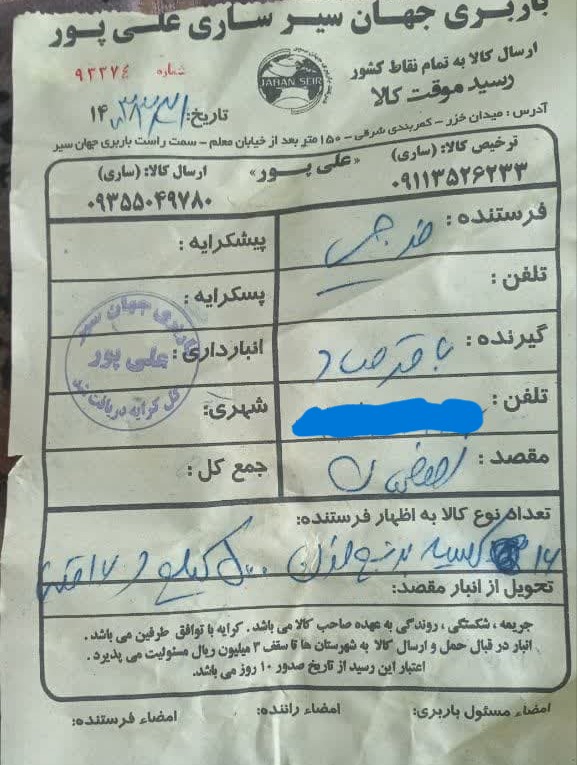 باربری جهان سیر ساری علی پور
ارسال کالا به تمام نقاط کشور
رسید موقت کالا
JAHAN SEIR
شماره ۹۲۲۷۴
تاریخ: ۱۴
آدرس: میدان خزر - کمربندی شرقی - ۱۵۰ متر بعد از خیابان معلم - سمت راست باربری جهان سیر
ترخیص کالا: (ساری) «علی پور» ارسال کالا: (ساری)
۰۹۱۱۳۵۲۶۲۳۳ ۰۹۳۵۵۰۴۹۷۸۰
فرستنده: پیشکرایه:
تلفن: پسکرایه:
گیرنده: انبارداری:
تلفن: شهری:
مقصد: جمع کل:
باربری جهان سیر
علی پور
کل کرایه دریافت شد
تعداد نوع کالا به اظهار فرستنده:
۱۶ کیسه
تحویل از انبار مقصد:
جریمه، شکستگی، روندگی به عهده صاحب کالا می باشد. کرایه با توافق طرفین می باشد.
انبار در قبال حمل و ارسال کالا به شهرستان ها تا سقف ۳ میلیون ریال مسئولیت می پذیرد.
اعتبار این رسید از تاریخ صدور ۱۰ روز می باشد.
امضاء مسئول باربری: امضاء راننده: امضاء فرستنده: